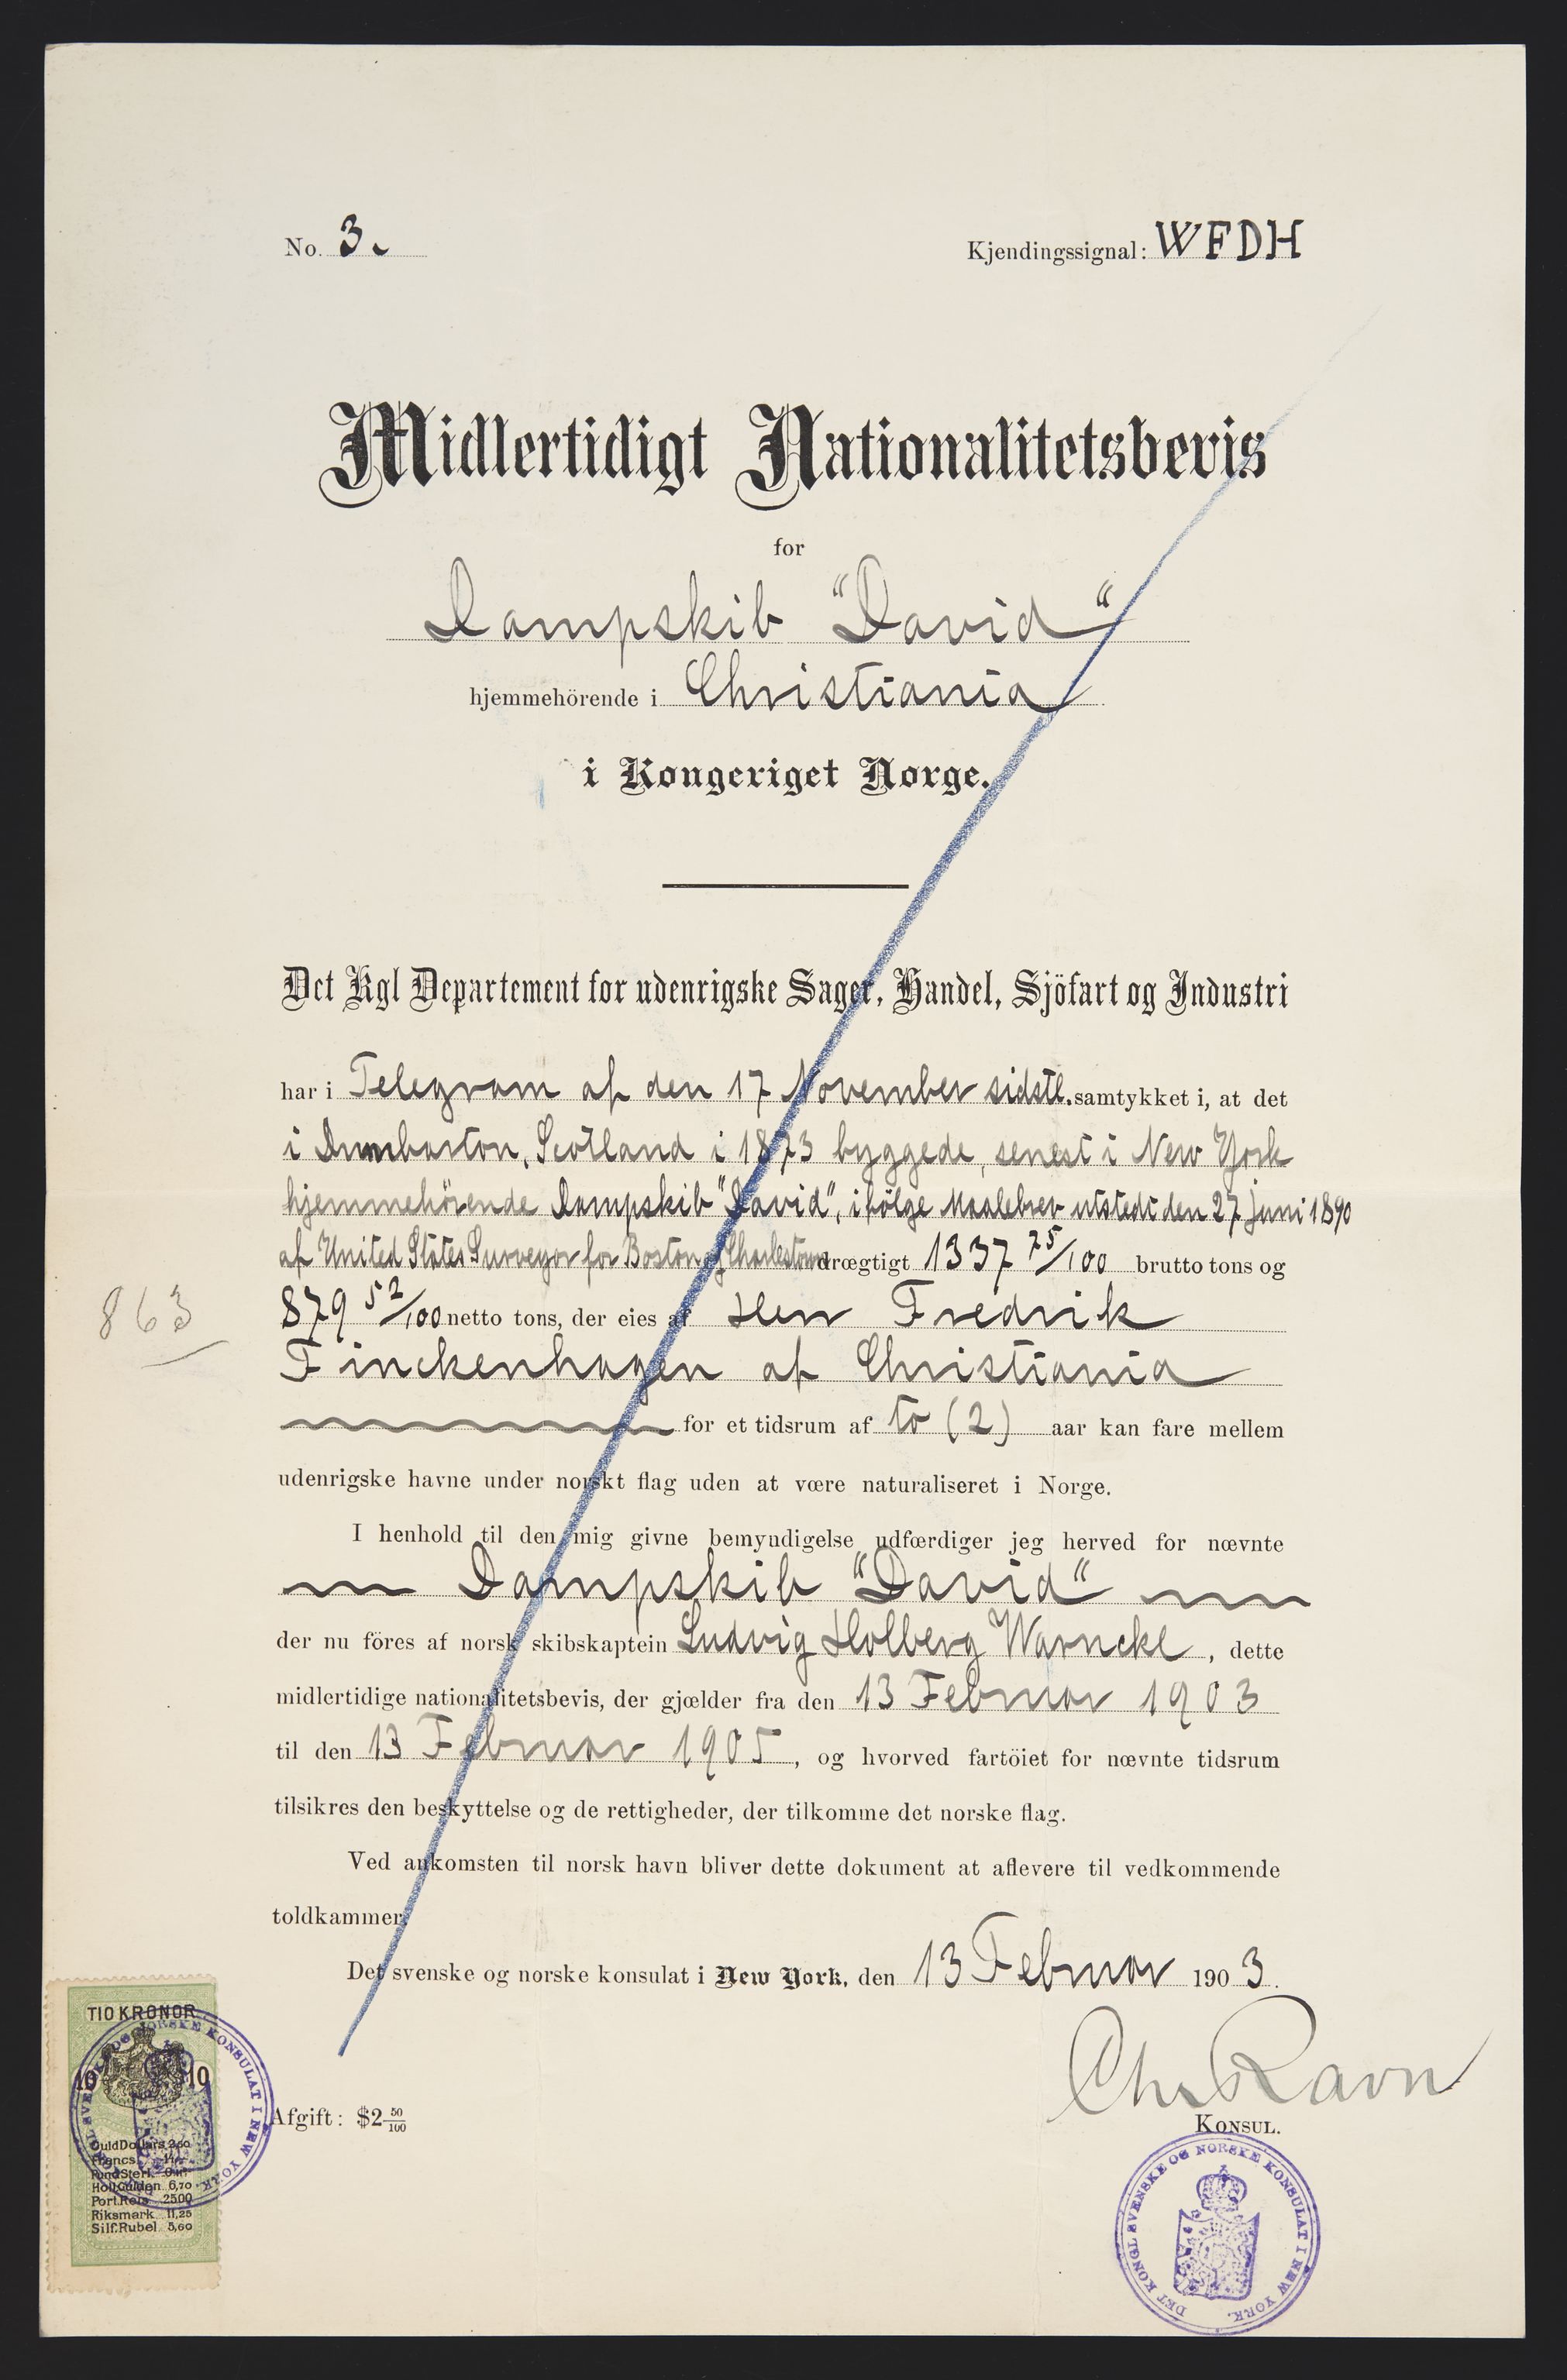 No. 3.
Kjendingssignal: WFDH
Midlertidigt Nationalitetsbevis
for
Dampskib "David"
hjemmehörende i Christiania
i Kongeriget Norge.
Det Kgl Departement for udenrigske Sager, Handel, Sjöfart og Industri
har i Telegram af den 17 November sidstl. samtykket i, at det
i Dumbarton, Scotland i 1873 byggede, senest i New York
hjemmehörende Dampskib "David", ifölge Maalebrev utstedt den 27 Juni 1890
af United States Surveyor for Boston og Charlestown drægtigt 1337 75/100 brutto tons og
863
879 52/100 netto tons, der eies af Herr Fredrik
Finckenhagen af Christiania
for et tidsrum af to (2) aar kan fare mellem
udenrigske havne under norskt flag uden at være naturaliseret i Norge.
I henhold til den mig givne bemyndigelse udfærdiger jeg herved for nævnte
Dampskib "David"
der nu föres af norsk skibskaptein Ludvig Holberg Warncke, dette
midlertidige nationalitetsbevis, der gjælder fra den 13 Februar 1903
til den 13 Februar 1905, og hvorved fartöiet for nævnte tidsrum
tilsikres den beskyttelse og de rettigheder, der tilkomme det norske flag.
Ved ankomsten til norsk havn bliver dette dokument at aflevere til vedkommende
toldkammer.
Det svenske og norske konsulat i New York, den 13 Februar 1903.
Chr Ravn
KONSUL.
Afgift: $2 50/100
TIO KRONOR
10 10
GuldDollars 2,60
Francs
Pund Sterl.
Holl.Gulden 6,70
Port.Reis 2500
Riksmark 11,25
Silf.Rubel 5,60
DET KONGL SVENSKE OG NORSKE KONSULAT I NEW YORK.
DET KONGL SVENSKE OG NORSKE KONSULAT I NEW YORK.